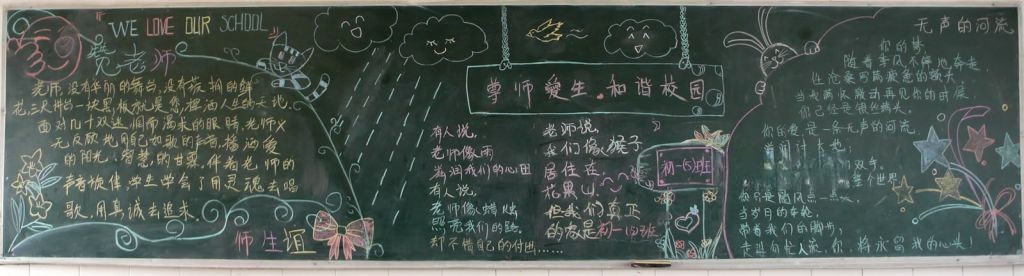 WE LOVE OUR SCHOOL
赞老师
老师,没有华丽的舞台,没有簇拥的鲜
花,三尺讲台一块黑板就是您挥洒人生的天地.
面对几十双迷惘而渴求的眼睛,老师义
无反顾地用自己如歌的和春,播洒爱
的阳光,智慧的甘霖.伴着老师的
声音旋律,学生学会了用灵魂去唱
歌,用真诚去追求.
师生谊
尊师爱生.和谐校园
有人说,
老师像雨
滋润我们的心田
有人说,
老师像蜡烛
照亮我们的路.
却不惜自己的付出……
老师说,
我们像猴子
居住在
花果山
但我们真正
的家是初一(5)班
初一(5)班
无声的河流
你的梦,
随着季风不停地奔走
让沧桑写满疲惫的额头
当我满怀激动再见你的时候
你已经是银丝满头.
你的爱是一条无声的河流
你总是随风点一点
当岁月的年轮
带着我们的脚步,
走进向老人感.你,将永留我的心头!